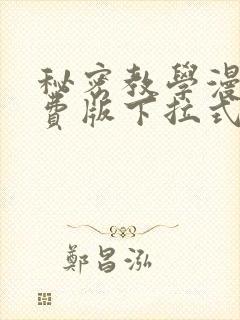 秘密教學漫
費版下拉式
鄭昌泓